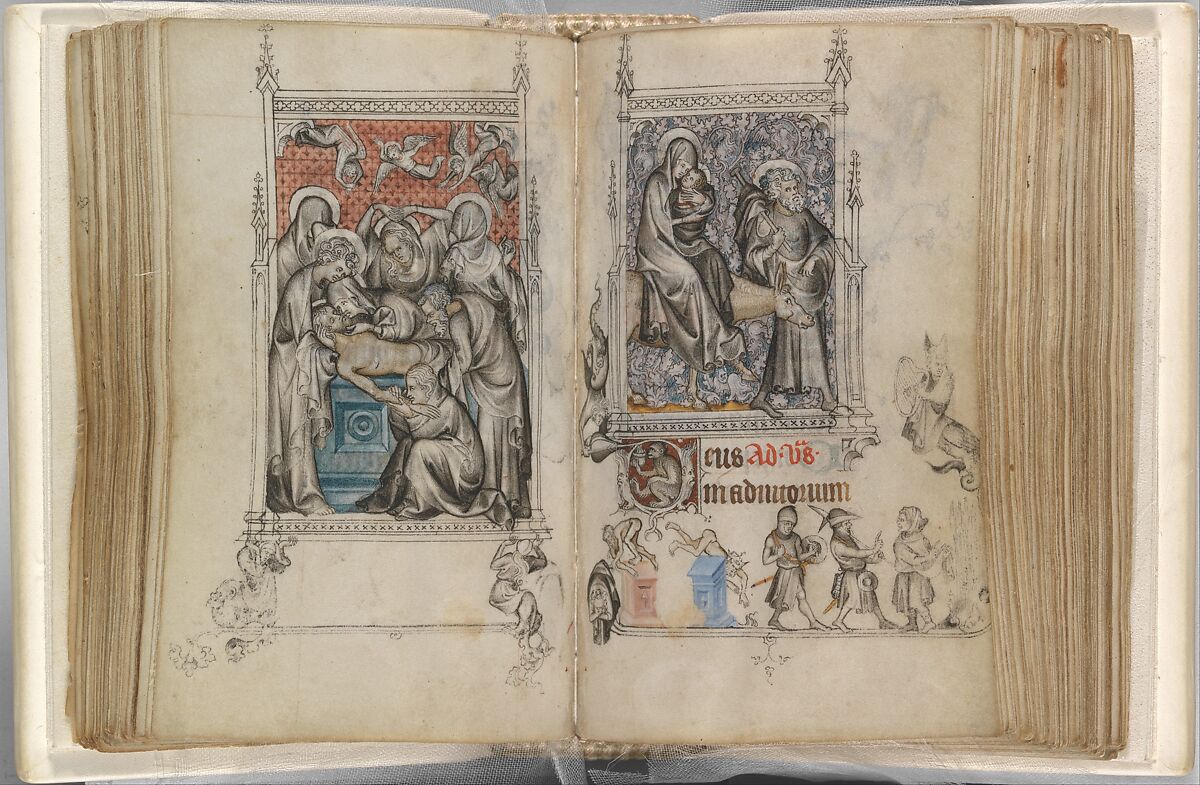 Deus Ad· vs̄·
in adiutorium